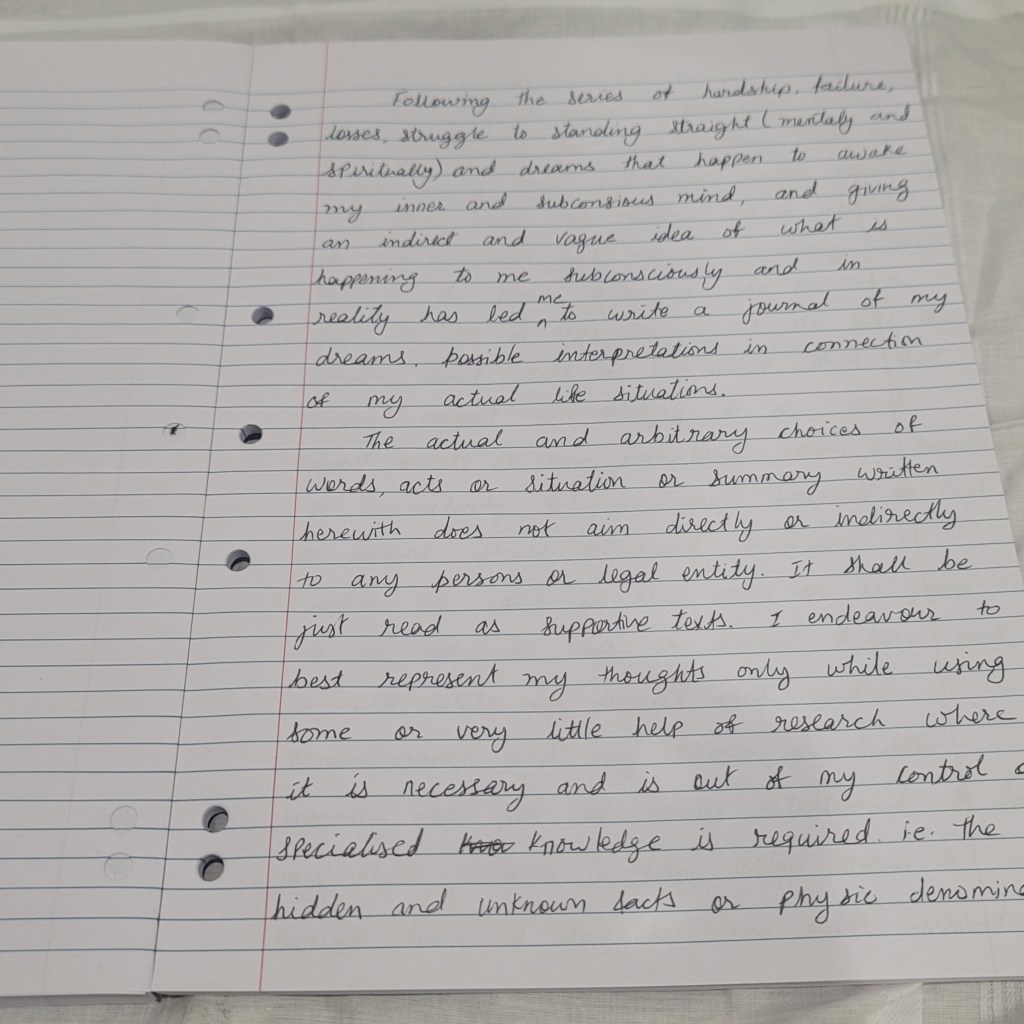 Following the series of hardship, failure,
losses, struggle to standing straight (mentaly and
spiritually) and dreams that happen to awake
my inner and subconsious mind, and giving
an indirect and vague idea of what is
happening to me subconsciously and in
reality has led me to write a journal of my
dreams, possible interpretations in connection
of my actual life situations.
The actual and arbitrary choices of
words, acts or situation or summary written
herewith does not aim directly or indirectly
to any persons or legal entity. It shall be
just read as supportive texts. I endeavour to
best represent my thoughts only while using
some or very little help of research where
it is necessary and is out of my control
specialised knowledge is required. i.e. the
hidden and unknown facts or physic